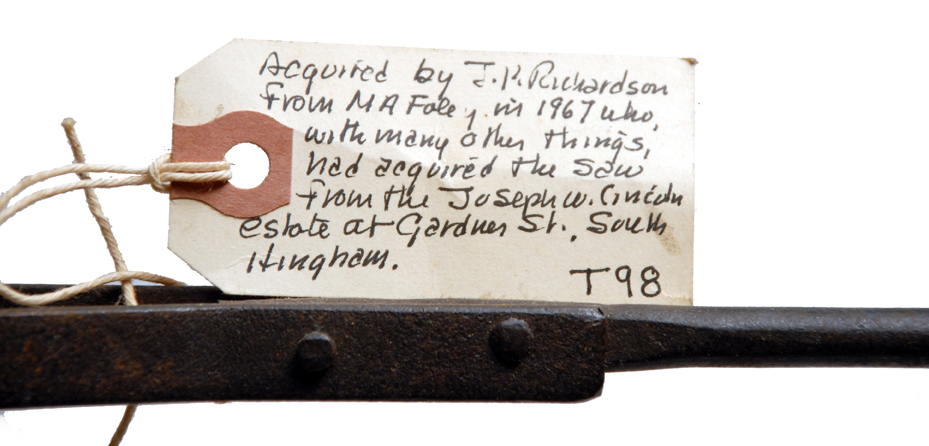 Acquired by J.P. Richardson
from M A Foley, in 1967 who,
with many other things,
had acquired the saw
from the Joseph W. Lincoln
estate at Gardner St., South
Hingham.
T98